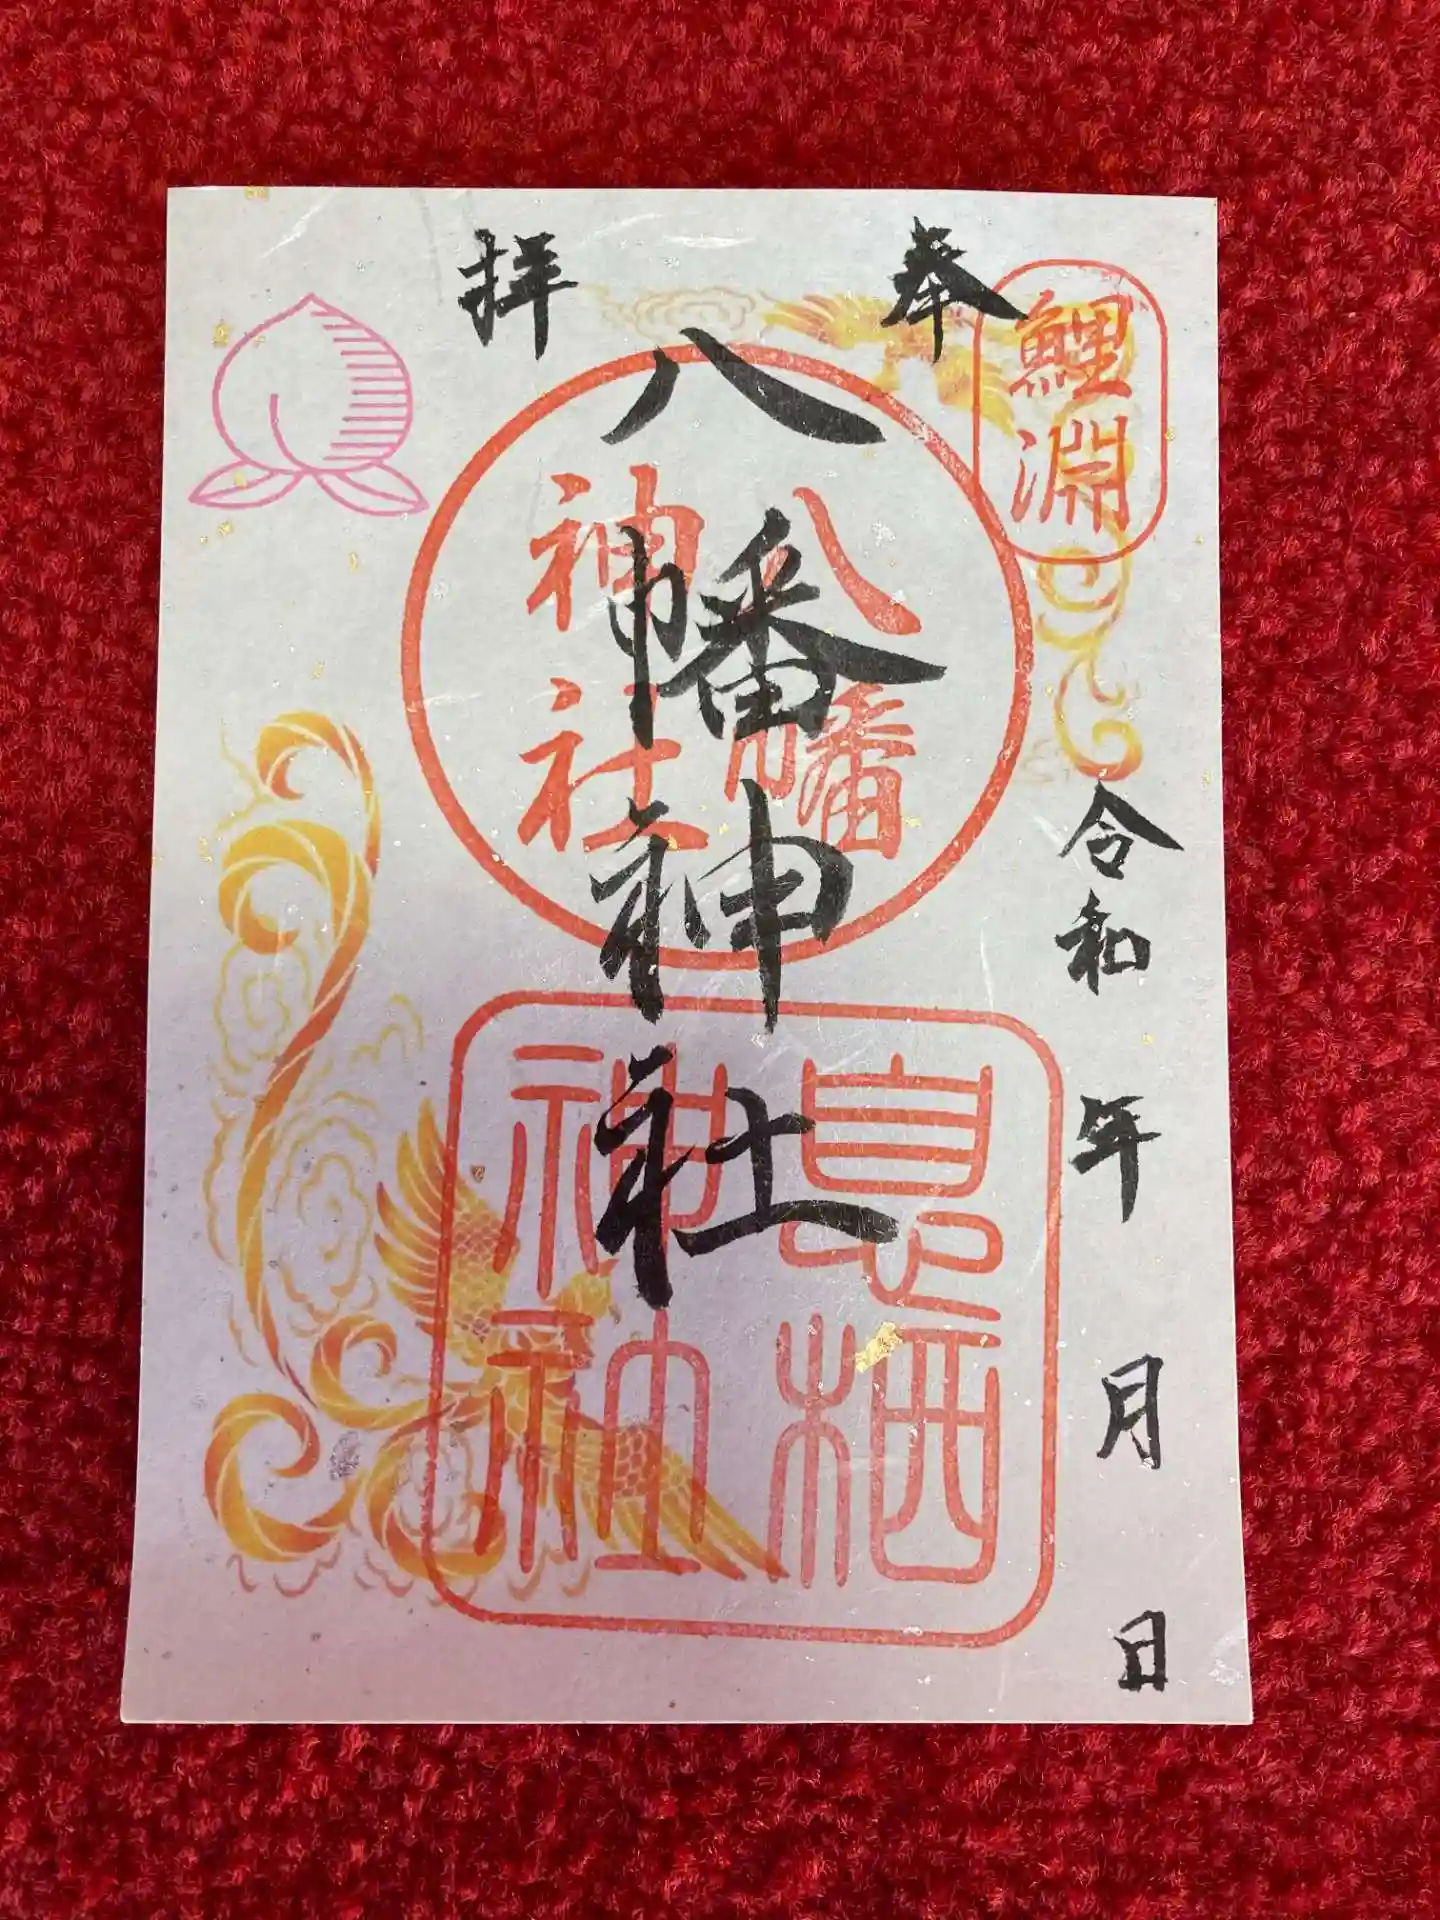 奉拝
鯉淵
八幡神社
八幡
神社
息栖
神社
令和 年 月 日